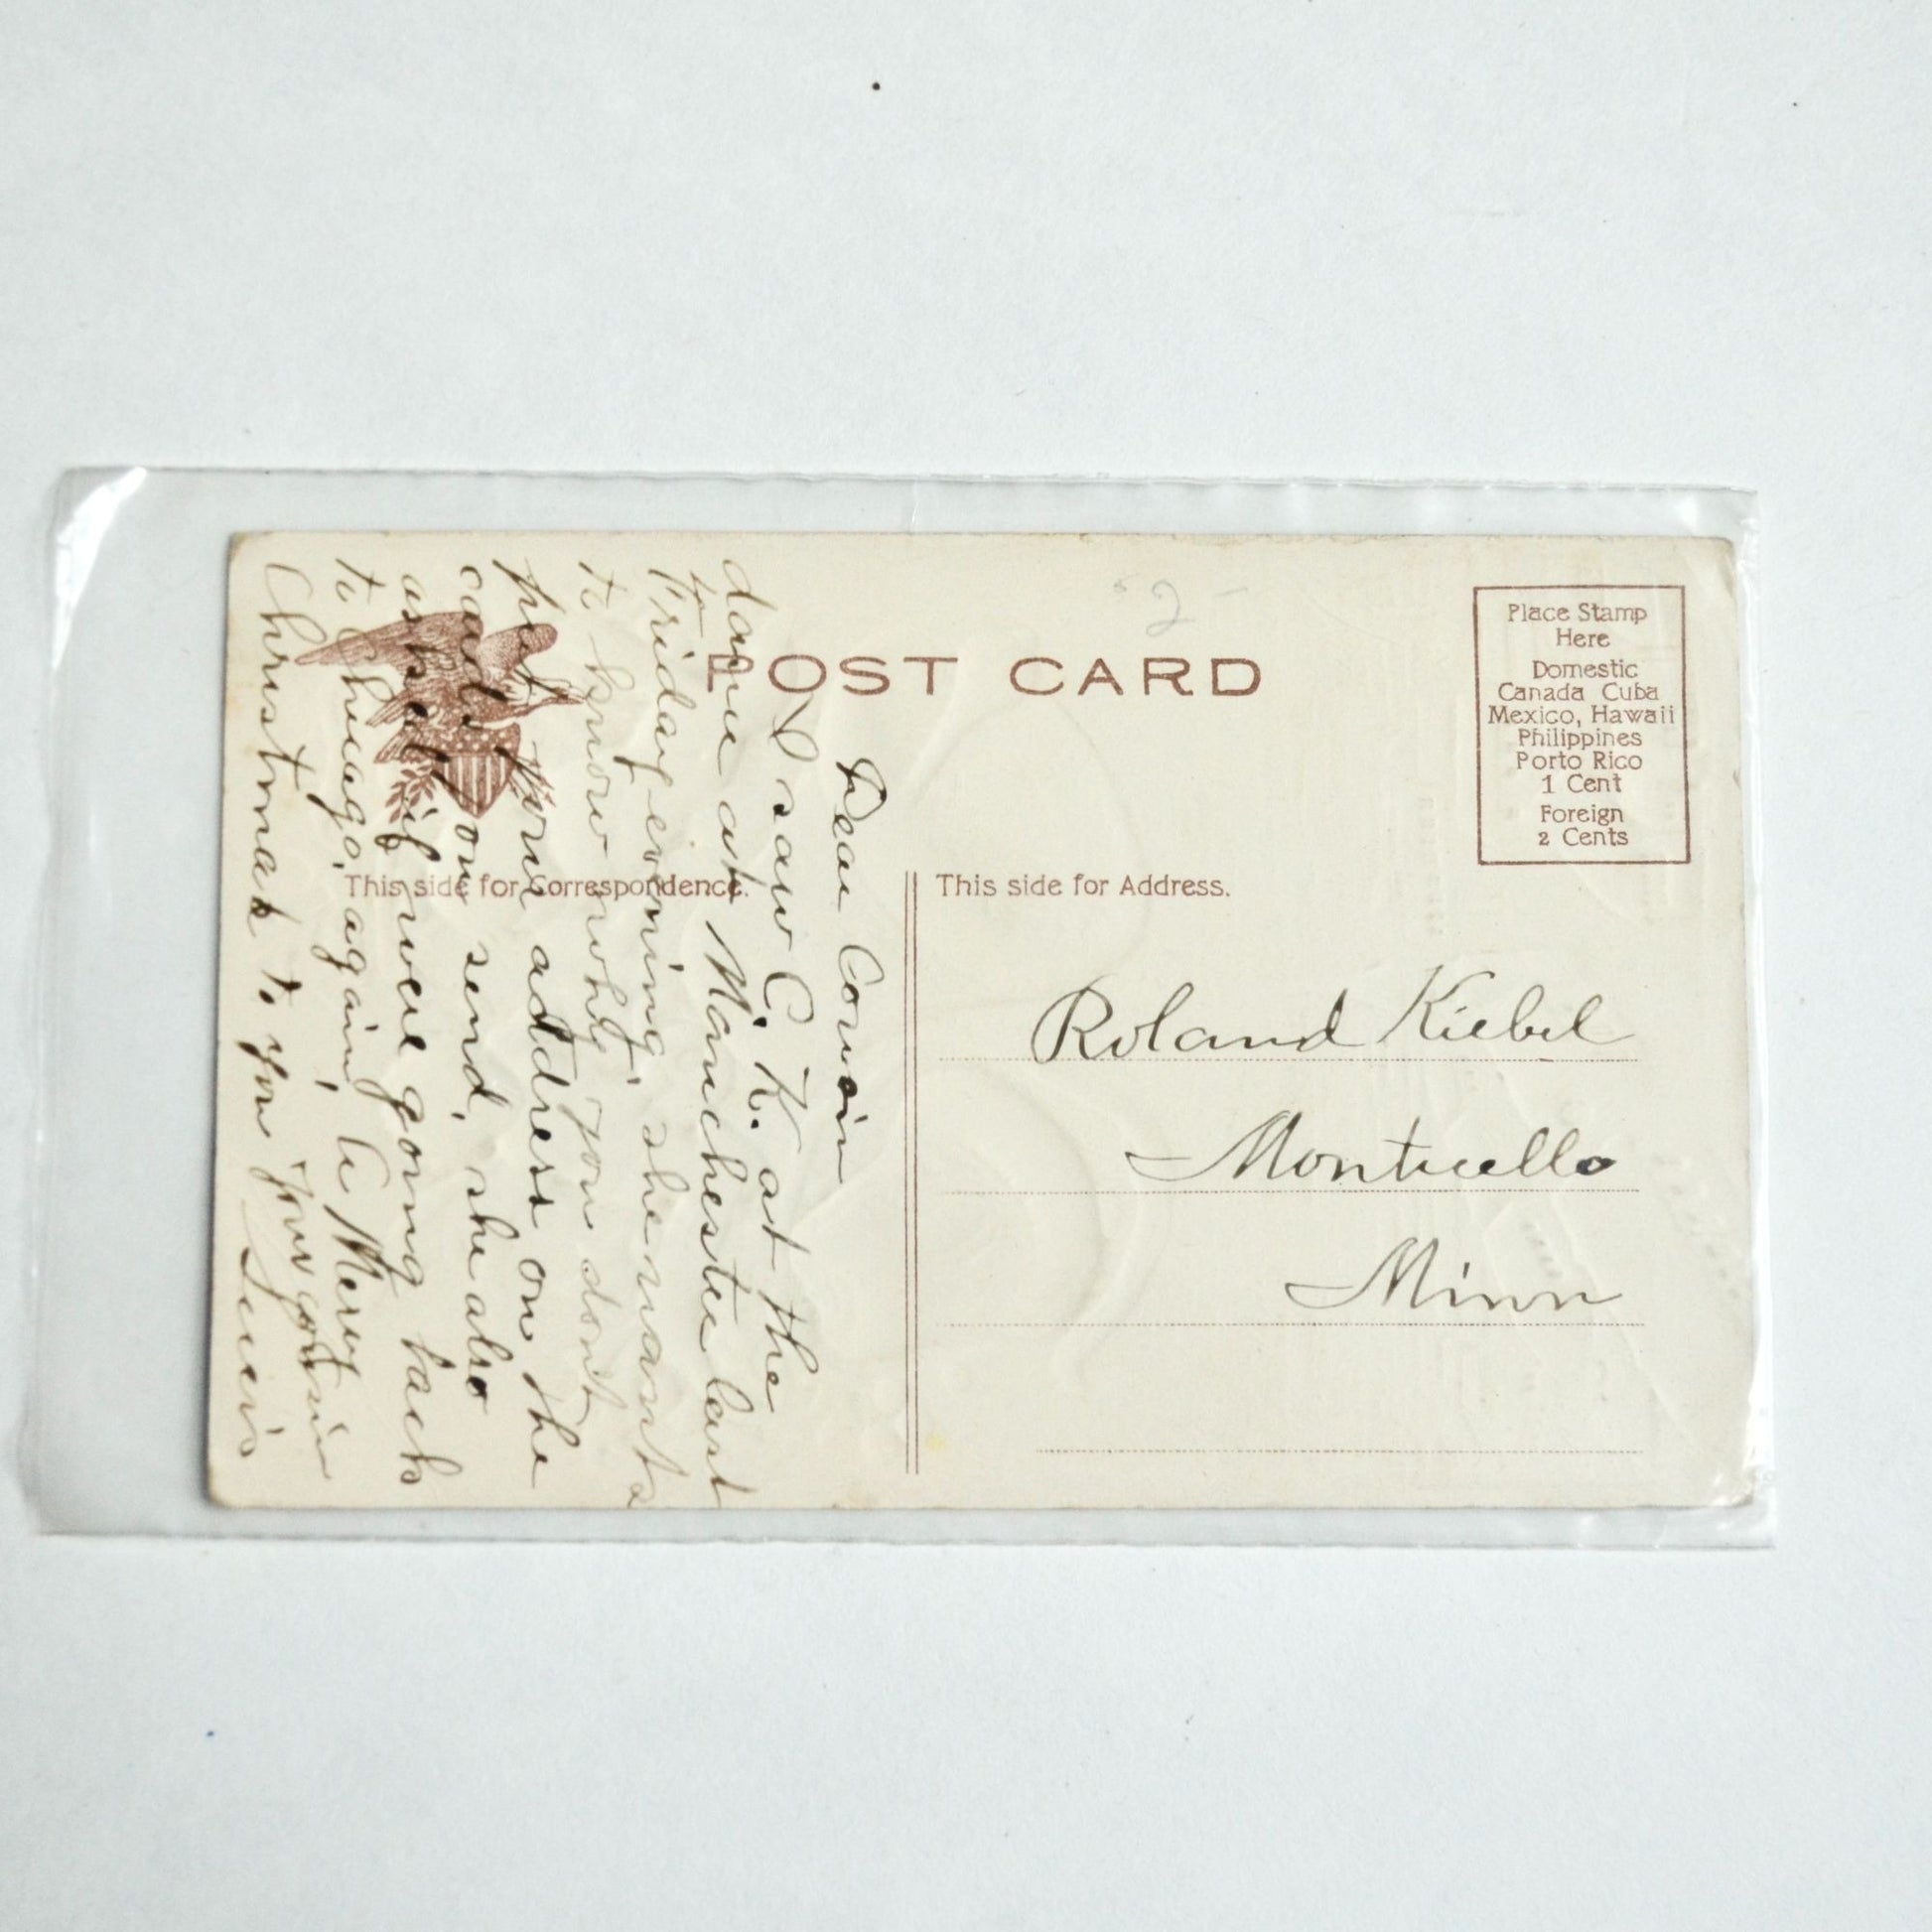 POST CARD
Place Stamp
Here
Domestic
Canada Cuba
Mexico, Hawaii
Philippines
Porto Rico
1 Cent
Foreign
2 Cents
This side for Correspondence.
This side for Address.
Dear Cousin
I saw C. K. at the
dance at Manchester last
Friday evening, she wants
to know why you dont
put your address on the
cards you send, she also
asked if I were going back
to Chicago, again, A Merry
Christmas to you Your cousin
Roland Kiebel
Monticello
Minn